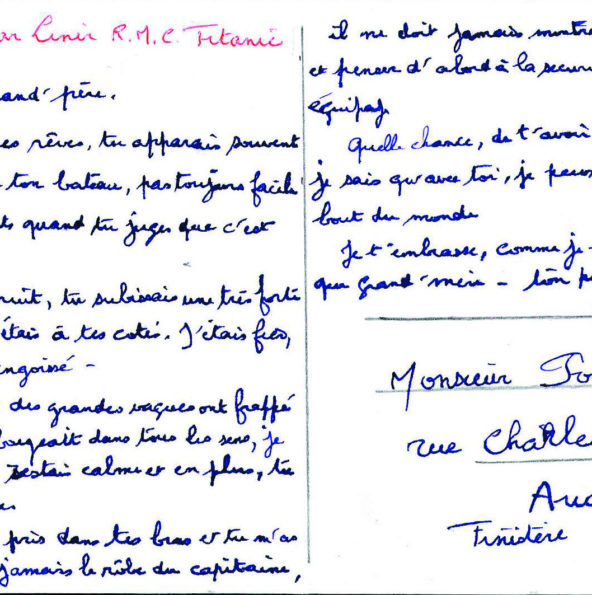 Linir R.M.C. Titanic
and' père.
es rêves, tu apparais souvent
ton bateau, pas toujours facile
ts quand tu juges que c'est
nuit, tu subissais une très forte
étais à tes cotés. J'étais fier,
angoissé -
des grandes vagues ont frappé
bougeait dans tous les sens, je
restais calme et en plus, tu
pris dans tes bras et tu m'as
jamais le rôle du capitaine,
il ne doit jamais montre
et penser d'abord à la secur
équipage
Quelle chance, de t'avoir
je sais qu'avec toi, je peux
bout du monde
Je t'embrasse, comme je
que grand-mère - ton p
Monsieur Fo
rue Charle
Aud
Finistère